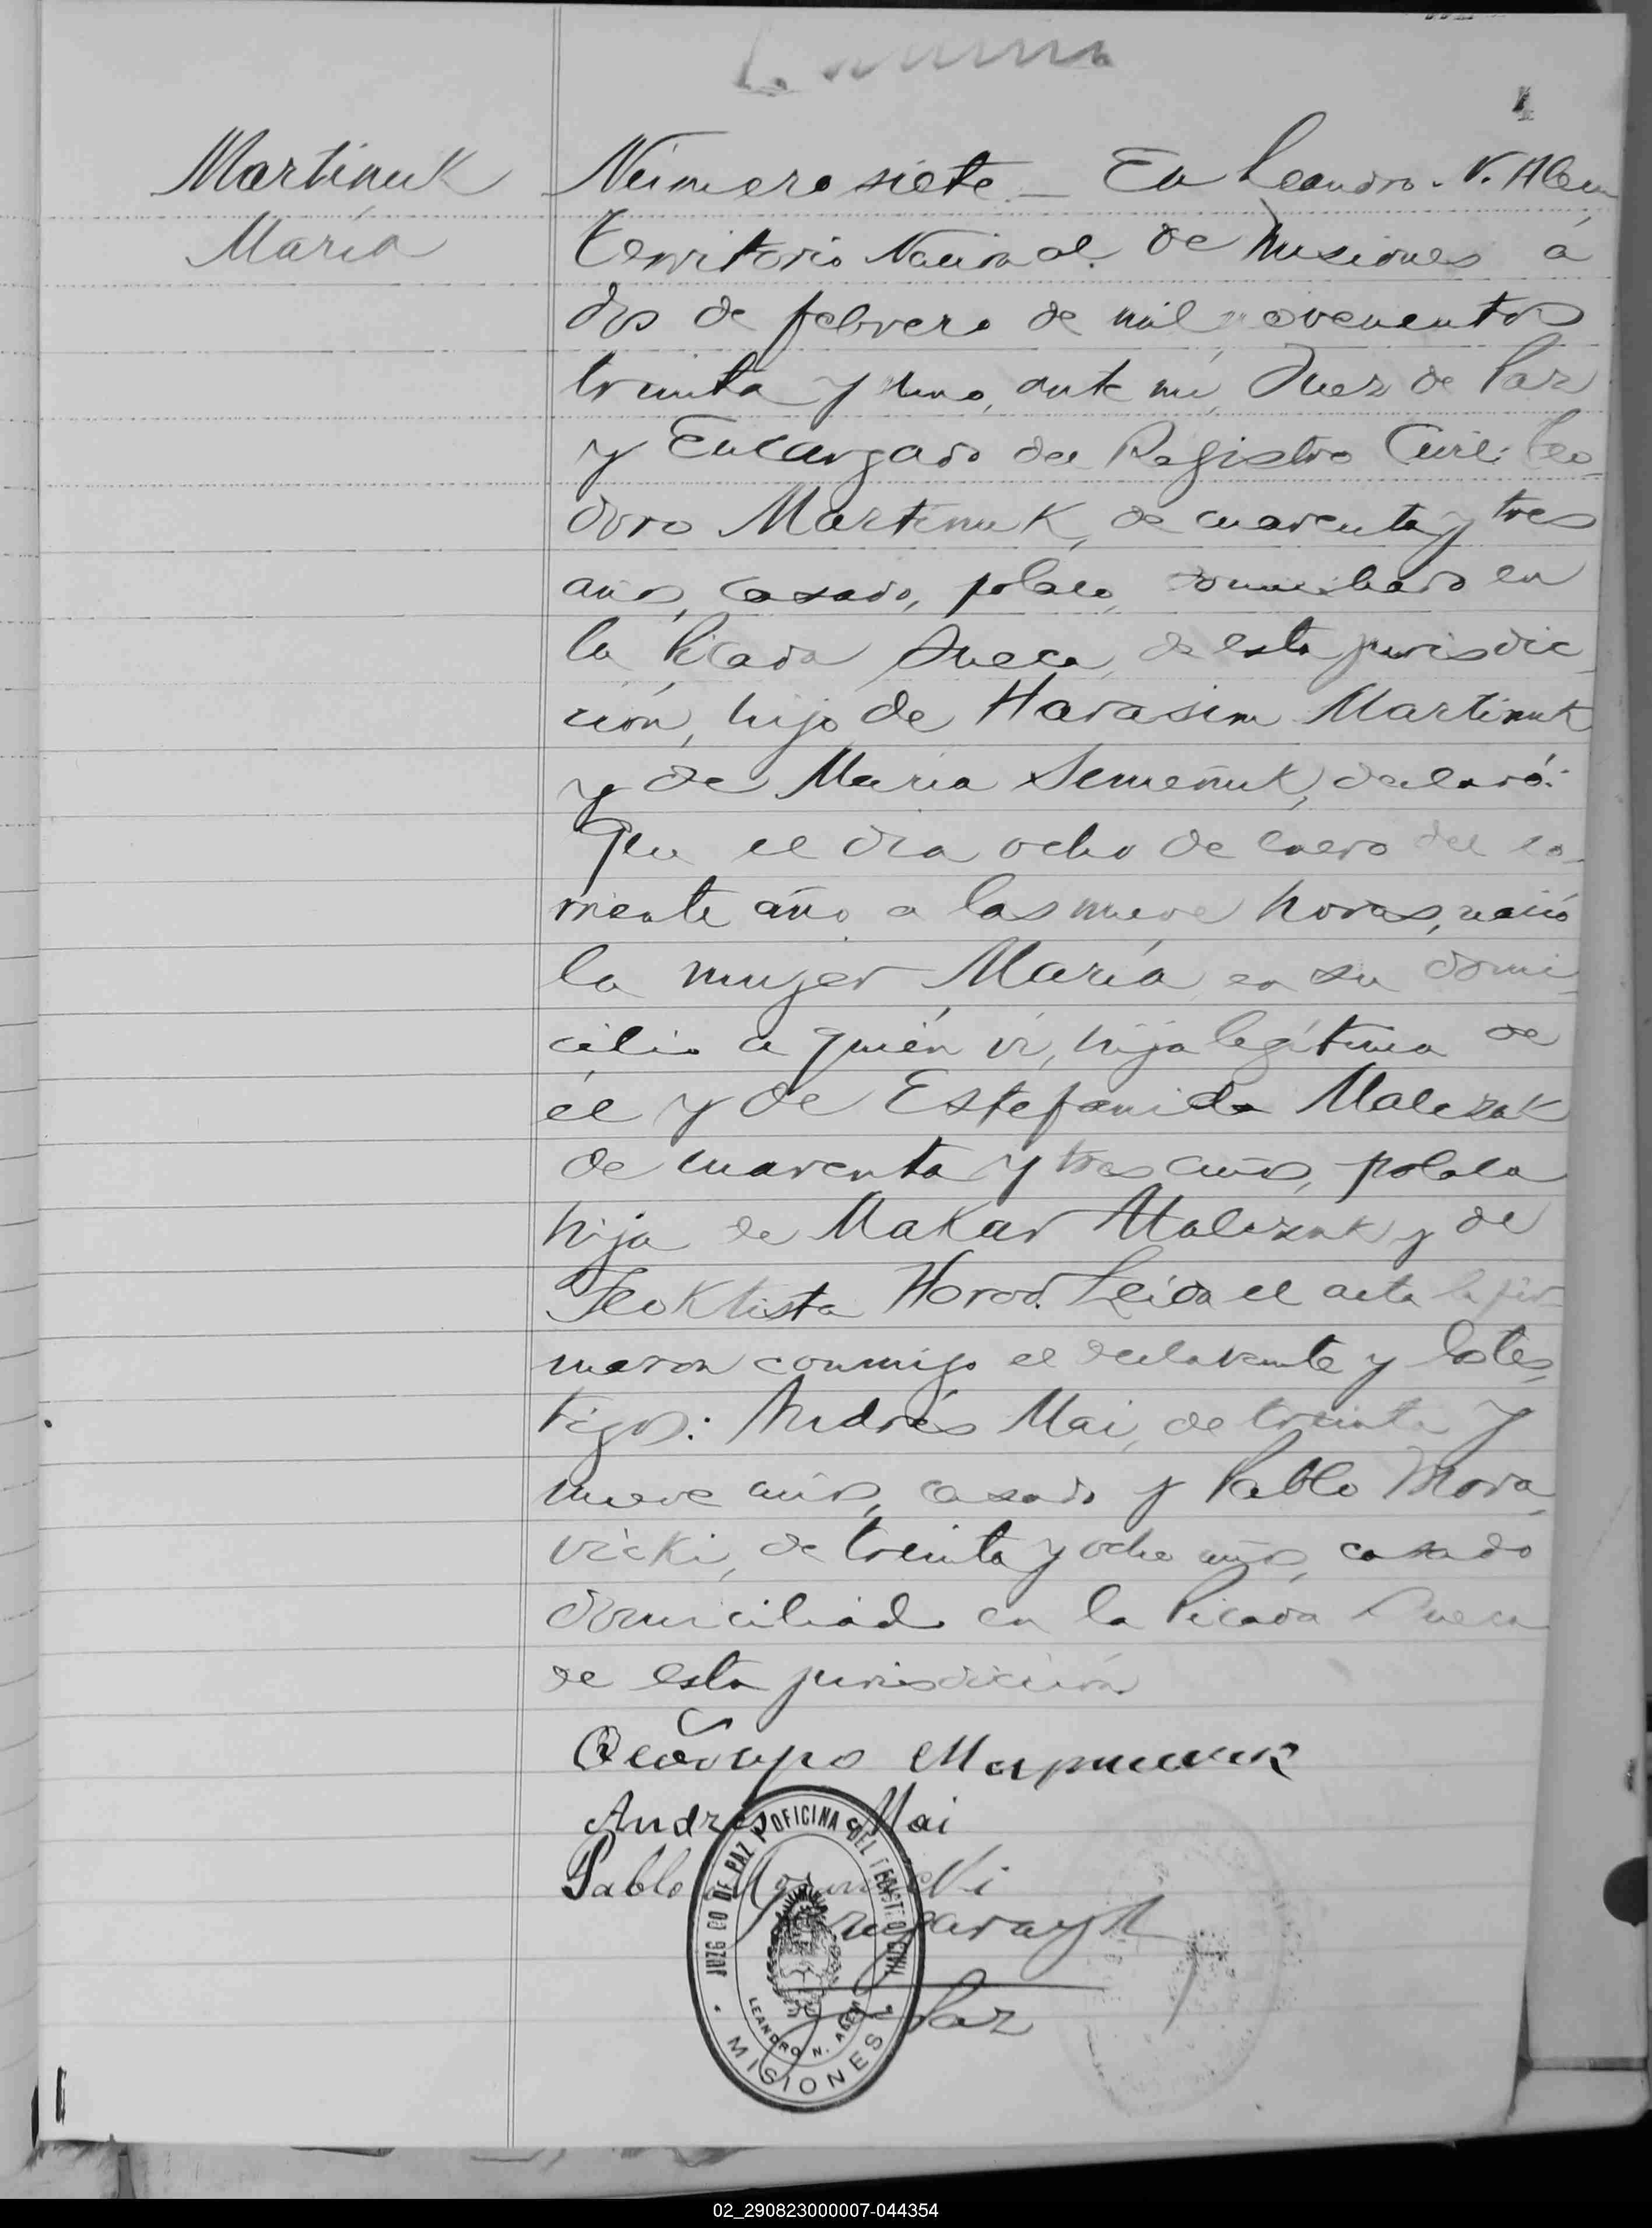 4
Martinuk
María
Número siete.— En Leandro. N. Alem
Territorio Nacional de Misiones á
dos de febrero de mil novecientos
treinta y uno, ante mi, Juez de Paz
y Encargado del Registro Civil: Teo-
doro Martinuk, de cuarenta y tres
años, casado, polaco, domiciliado en
la Picada Sueca, de esta jurisdic-
ción, hijo de Harasim Martinuk
y de María Semeñuk, declaró:
Que el día ocho de enero del co-
rriente año a las nueve horas, nació
la mujer María en su domi-
cilio a quién vi, hija legítima de
él y de Estefanida Malezak
de cuarenta y tres años, polaca
hija de Makar Malezak y de
Teoktista Horod. Leída el acta la fir-
maron conmigo el declarante y los tes-
tigos: Andrés Mai, de treinta y
nueve años, casado y Pablo Mora-
vicki, de treinta y ocho años, casado
domiciliados en la Picada Sueca
de esta jurisdicción
Теодоро Мартинюк
Andres Mai
Pablo
Paz
JUZGADO DE PAZ Y OFICINA DEL REGISTRO CIVIL
LEANDRO N. ALEM
* MISIONES *
02_290823000007-044354